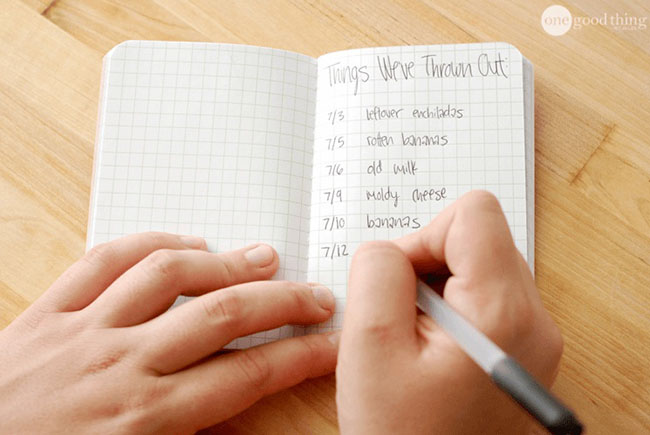 one good thing
Things We've Thrown Out
7/3 leftover enchiladas
7/5 rotten bananas
7/6 old milk
7/9 moldy cheese
7/10 bananas
7/12